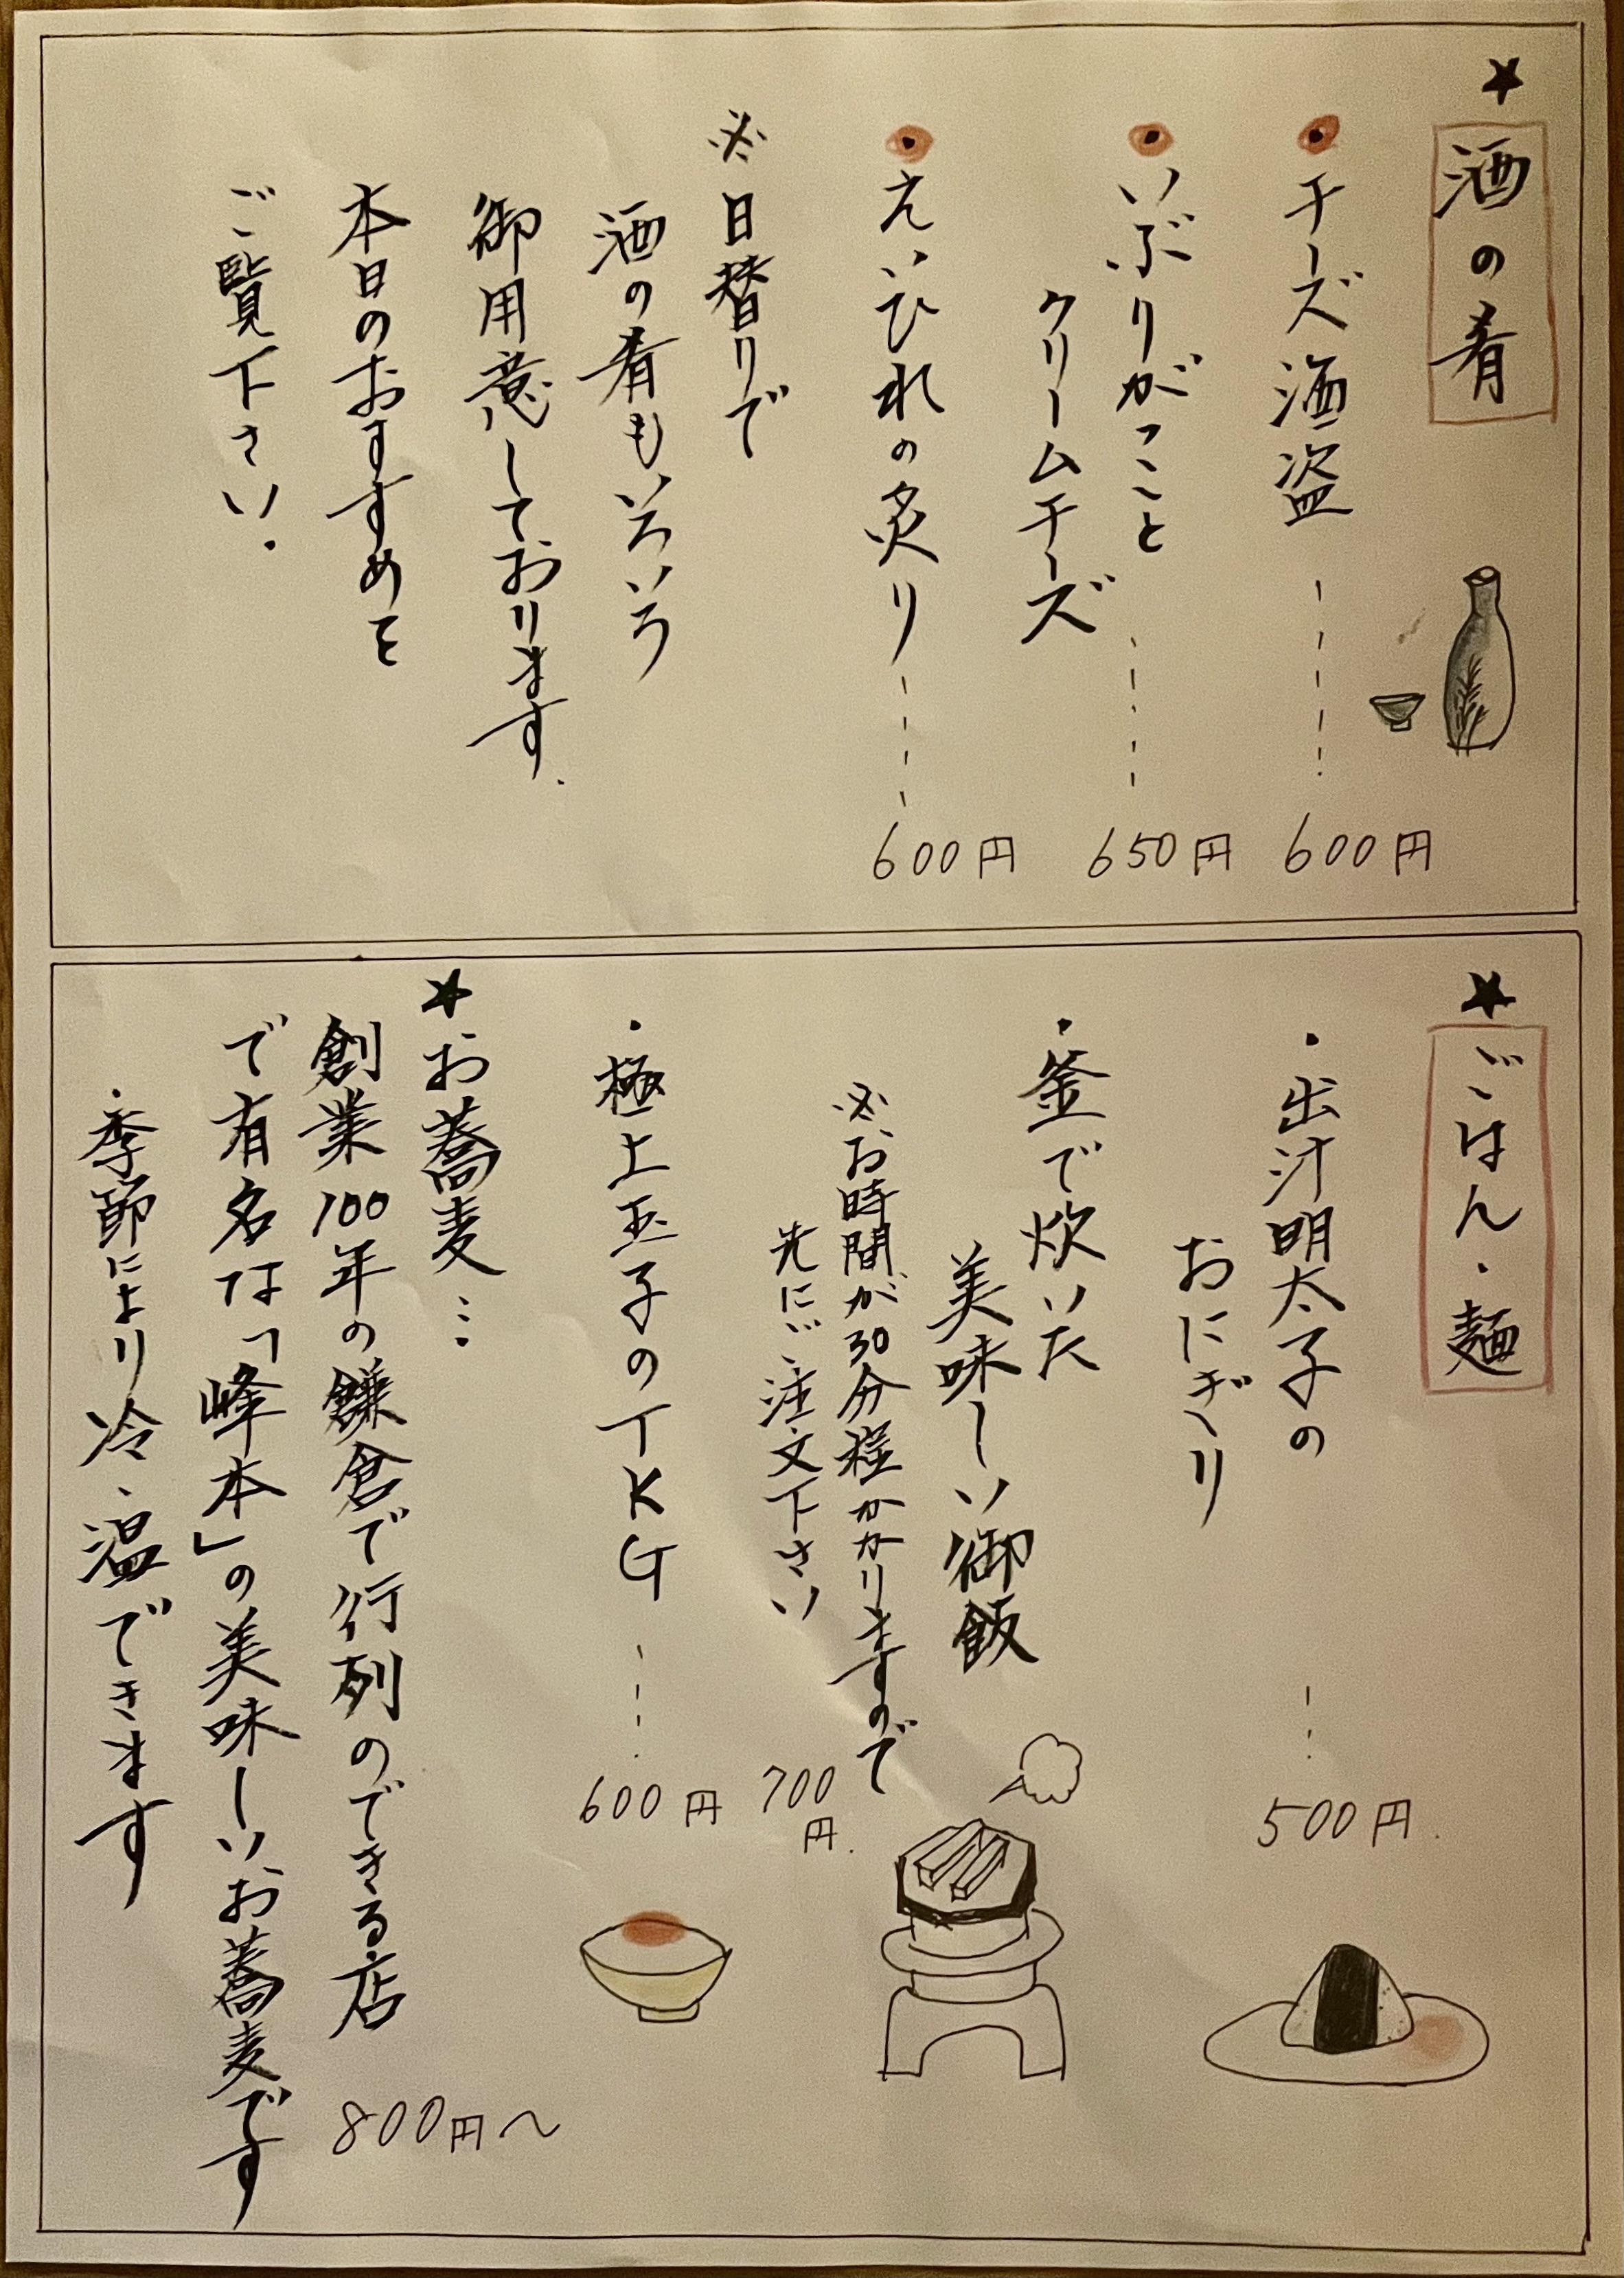 ★酒の肴
チーズ酒盗 ---- 600円
いぶりがっこと
クリームチーズ ---- 650円
えいひれの炙り ---- 600円
※日替りで
酒の肴もいろいろ
御用意しております.
本日のおすすめを
ご覧下さい.
★ごはん・麺
・出汁明太子の
おにぎり --- 500円.
・釜で炊いた
美味しい御飯
※お時間が30分程かかりますので
先にご注文下さい 700円.
・極上玉子のTKG ---- 600円
★お蕎麦… 800円〜
創業100年の鎌倉で行列のできる店
で有名な「峰本」の美味しいお蕎麦です
・季節により冷、温できます